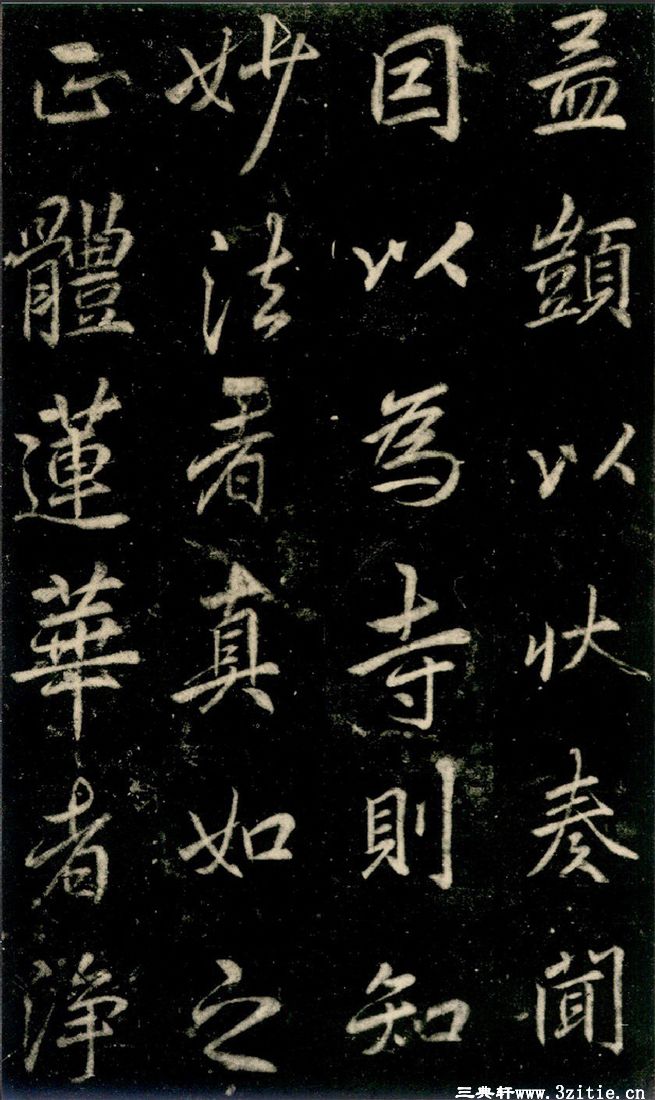 益顗以状奏聞
因以為寺則知
妙法者真如之
正體蓮華者淨
三典轩www.3zitie.cn